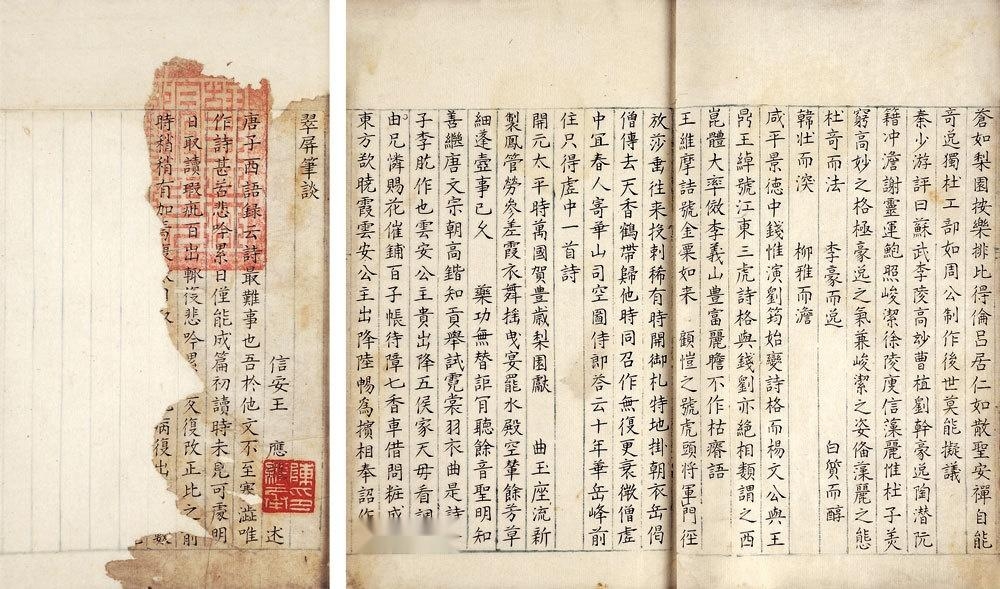 翠屏筆談
信安王 應 述
唐子西語錄云詩最難事也吾於他文不至蹇澁唯
作詩甚苦悲吟累日僅能成篇初讀時未見可羞明
日取讀瑕疵百出輒復悲吟累反復改正比之前
時稍稍有加焉復病復出
蒼如梨園按樂排比得倫呂居仁如散聖安禪自能
奇逸獨杜工部如周公制作後世莫能擬議
秦少游評曰蘇武李陵高妙曹植劉幹豪逸陶潛阮
籍冲澹謝靈運鮑照峻潔徐陵庾信藻麗惟杜子美
窮高妙之格極豪逸之氣兼峻潔之姿俻藻麗之態
杜奇而法 李豪而逸 白質而醇
韓壯而深 柳雅而澹
咸平景德中錢惟演劉筠始變詩格而楊文公與王
鼎王綽號江東三虎詩格與錢劉亦絕相類謂之西
崑體大率傚李義山豐富麗贍不作枯瘠語
王維摩詰號金粟如來 顧愷之號虎頭將軍門徑
放莎垂往來投刺稀有時開御札特地掛朝衣岳僧
僧傳去天香鶴帶歸他時同召作無復更衰微僧虛
中宜春人寄華山司空圖侍郎答云十年華岳峰前
住只得虛中一首詩
開元太平時萬國賀豐歲梨園獻 曲玉座流新
製鳳管勞參差霞衣舞揺曳宴罷水殿空輦餘芳草
細蓬壺事已久 藥功無替詎肯聽餘音聖明知
善繼唐文宗朝高鍇知貢舉試霓裳羽衣曲是詩
子李肱作也雲安公主貴出降五侯家天母看調
由兄憐賜花催鋪百子帳待障七香車借問粧成
東方欲曉霞雲安公主出降陸暢為擯相奉詔作